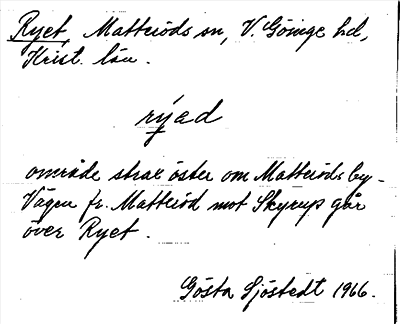 Ryet, Matteröds sn, V. Göinge hd,
Krist. län.
rýəd
område strax öster om Matteröds by -
Vägen fr. Matteröd mot Skyrup går
över Ryet.
Gösta Sjöstedt 1966.